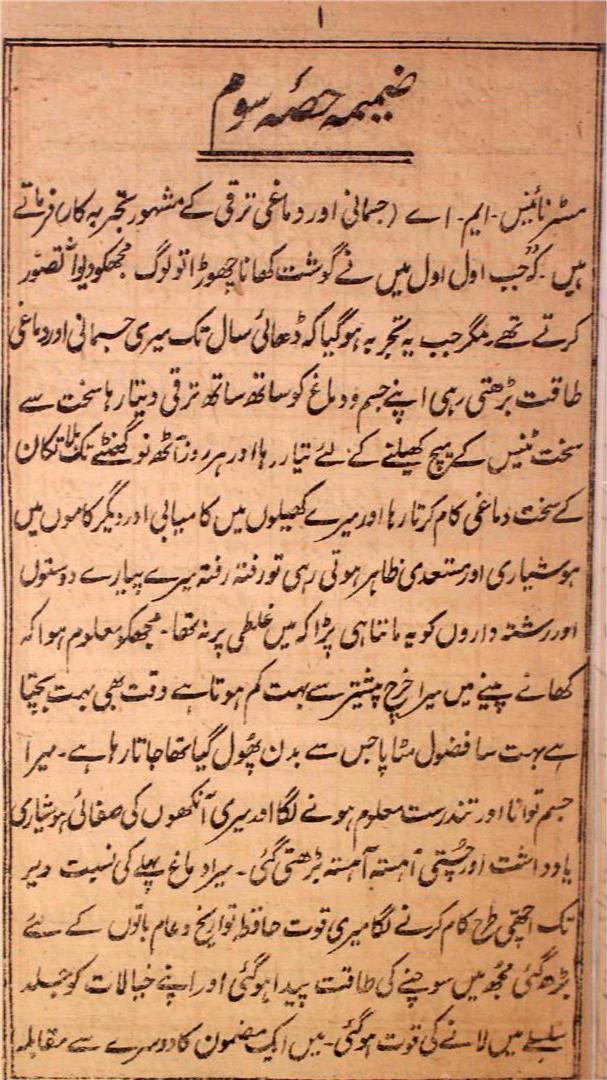 ۱
ضمیمہ حصّہ سوم
مسٹر نائیس۔ ایم۔ اے (جسمانی اور دماغی ترقی کے مشہور تجربہ کار) فرماتے
ہیں۔ کہ جب اول اول میں نے گوشت کھانا چھوڑا تو لوگ مجھکو دیوانہ تصوّر
کرتے تھے۔ مگر جب یہ تجربہ ہوگیا کہ ڈھائی سال تک میری جسمانی اور دماغی
طاقت بڑھتی رہی اپنے جسم و دماغ کو ساتھ ساتھ ترقی دیتا رہا سخت سے
سخت ٹینس کے میچ کھیلنے کے لئے تیار رہا اور ہر روز آٹھ نو گھنٹے تک بلا تکان
کے سخت دماغی کام کرتا رہا اور میرے کھیلوں میں کامیابی اور دیگر کاموں میں
ہوشیاری اور مستعدی ظاہر ہوتی رہی تو رفتہ رفتہ میرے پیارے دوستوں
اور رشتہ داروں کو یہ ماننا ہی پڑا کہ میں غلطی پر نہ تھا۔ مجھکو معلوم ہوا کہ
کھانے پینے میں میرا خرچ پیشتر سے بہت کم ہوتا ہے وقت بھی بہت بچتا
ہے بہت سا فضول مٹاپا جس سے بدن پھول گیا تھا جاتا رہا ہے۔ میرا
جسم توانا اور تندرست معلوم ہونے لگا اور میری آنکھوں کی صفائی ہوشیاری
یادداشت اور چستی آہستہ آہستہ بڑھتی گئی۔ میرا دماغ پہلے کی نسبت دیر
تک اچھی طرح کام کرنے لگا میری قوت حافظہ تواریخ و عام باتوں کے لئے
بڑھ گئی مجھ میں سوچنے کی طاقت پیدا ہوگئی اور اپنے خیالات کو جلد
سلسلے میں لانے کی قوت ہوگئی۔ میں ایک مضمون کا دوسرے سے مقابلہ